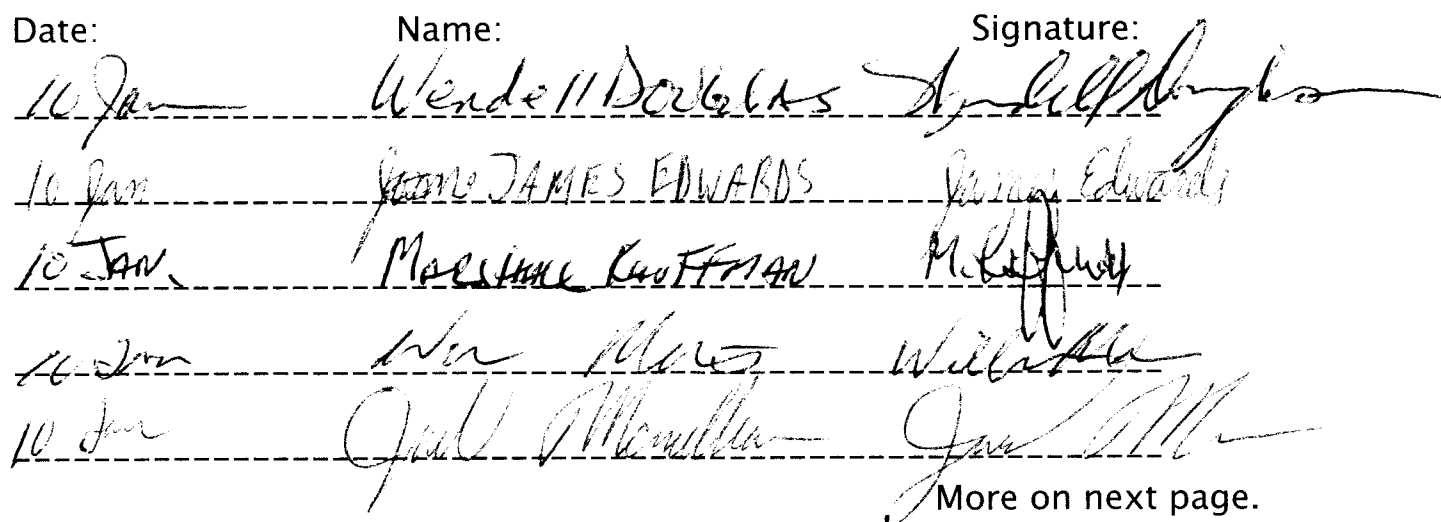 Date: Name: Signature:
10 Jan Wendell DOUGLAS Wendell Douglas
10 Jan JAMES EDWARDS James Edwards
10 JAN. MARSHALL KAUFFMAN M. Kauffman
10 Jan
10 Jan Mcmillan
More on next page.